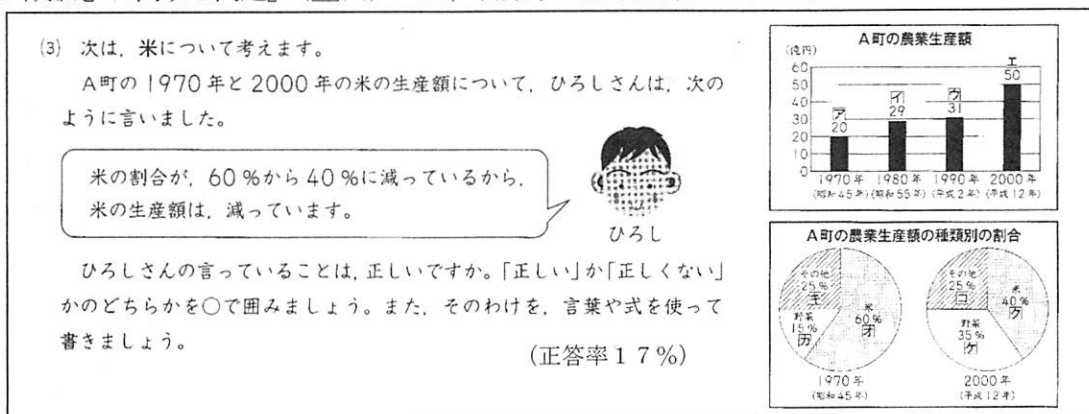 (3) 次は，米について考えます。
A町の1970年と2000年の米の生産額について，ひろしさんは，次の
ように言いました。
米の割合が，60％から40％に減っているから，
米の生産額は，減っています。
ひろし
ひろしさんの言っていることは，正しいですか。「正しい」か「正しくない」
かのどちらかを○で囲みましょう。また，そのわけを，言葉や式を使って
書きましょう。
(正答率17%)
A町の農業生産額
(億円)
60
50
40
30
20
10
0
ア
20
イ
29
ウ
31
エ
50
1970年 1980年 1990年 2000年
(昭和45年) (昭和55年) (平成2年) (平成12年)
A町の農業生産額の種類別の割合
その他
25%
キ
米
60%
オ
野菜
15%
カ
1970年
(昭和45年)
その他
25%
コ
米
40%
ク
野菜
35%
ケ
2000年
(平成12年)